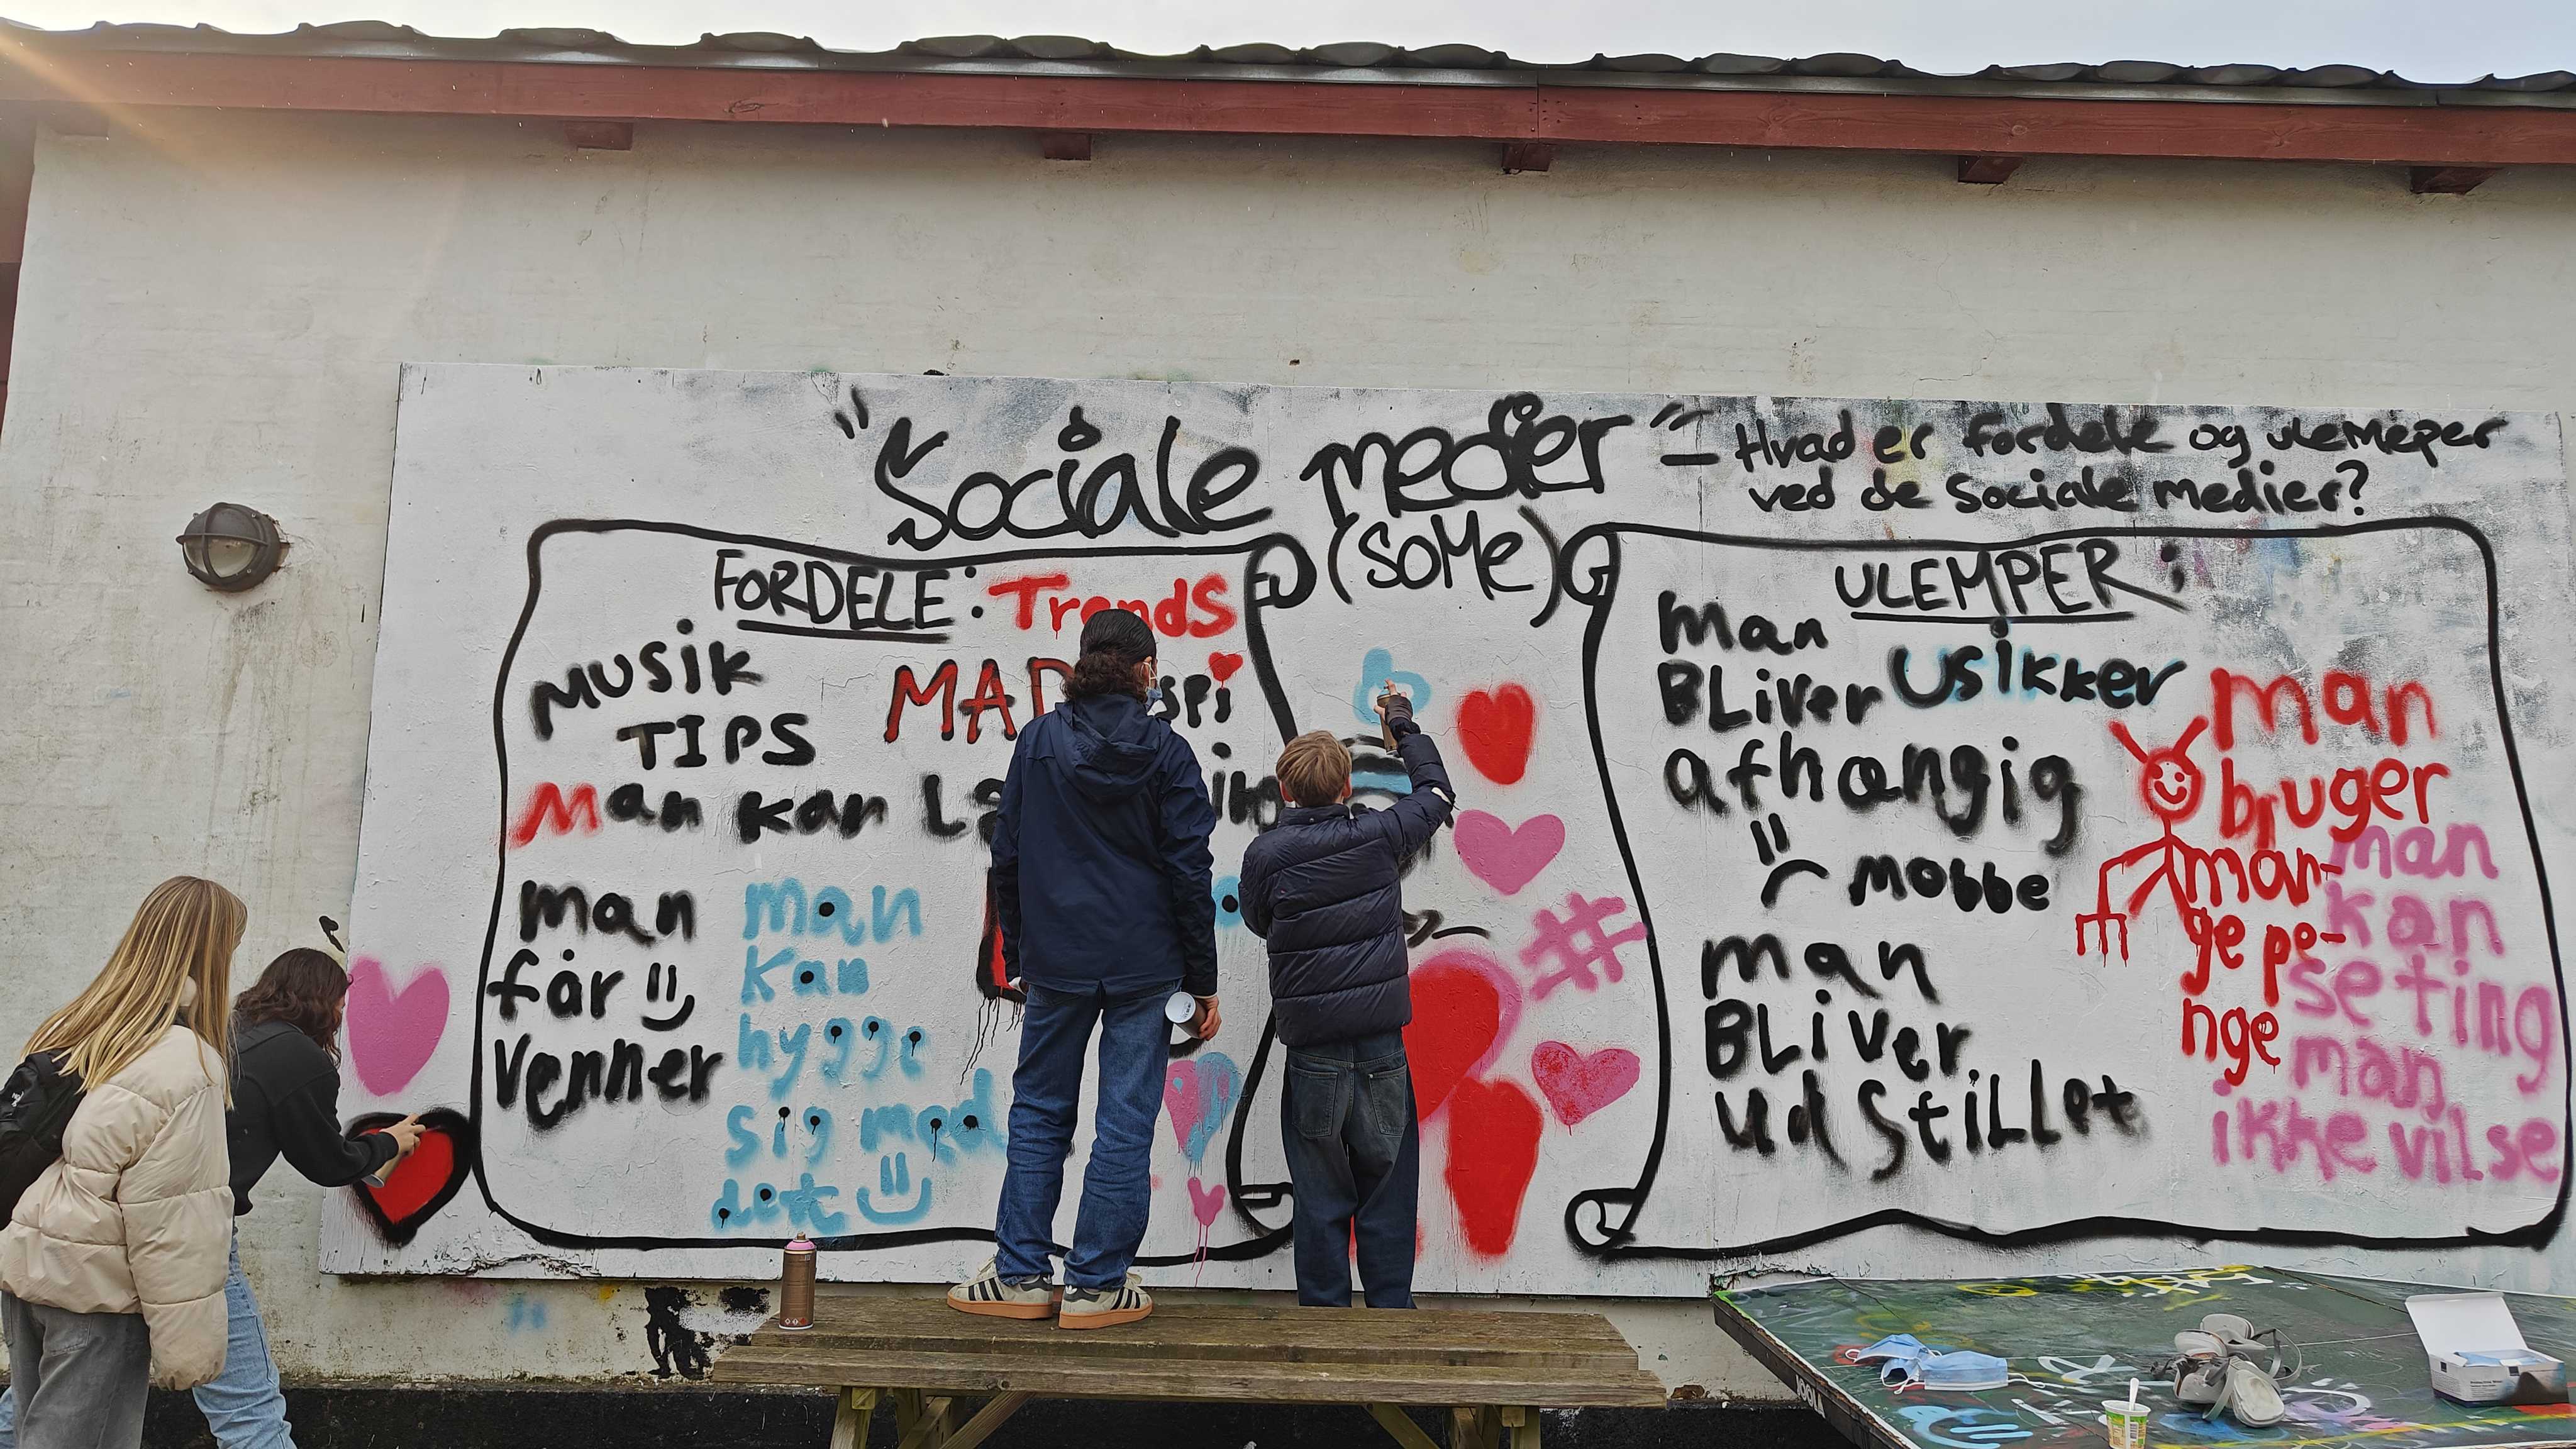 "Sociale medier" - Hvad er fordele og ulemeper
ved de Sociale medier?
(SoMe)
FORDELE: Trends
MUSIK
TIPS
MAD
Man kan
man
får
venner
man
kan
hygge
sig med
det
ULEMPER:
man
BLiver usikker
afhængig
mobbe
man
BLiver
udstillet
man
bruger
man-
ge pe-
nge
man
kan
se ting
man
ikke vil se
JOOLA